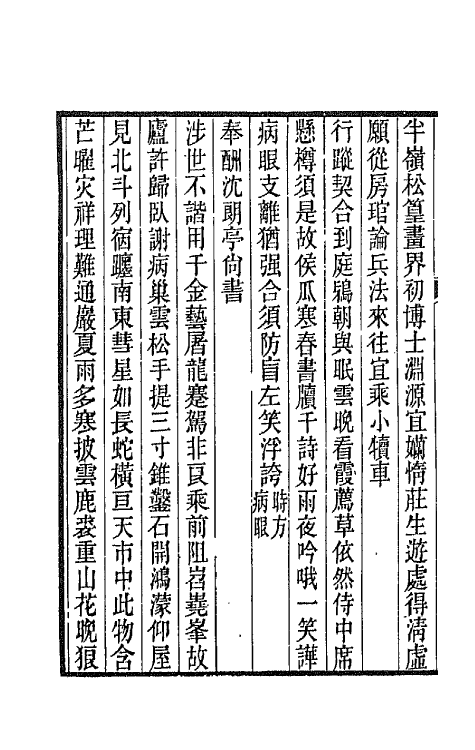 半嶺松篁畫界初博士淵源宜嬾惰莊生遊處得淸虛
願從房琯論兵法來往宜乘小犢車
行蹤契合到庭鴉朝與眠雲晩看霞薦草依然侍中席
懸樽須是故侯瓜寒春書牘千詩好雨夜吟哦一笑譁
病眼支離猶强合須防盲左笑浮誇時方病眼
奉酬沈朗亭尙書
涉世不諧用千金藝屠龍蹇駕非良乘前阻岧嶤峯故
廬許歸臥謝病巢雲松手提三寸錐鑿石開鴻濛仰屋
見北斗列宿躔南東彗星如長蛇橫亘天市中此物含
芒曜灾祥理難通嚴夏雨多寒披雲鹿裘重山花晩狼